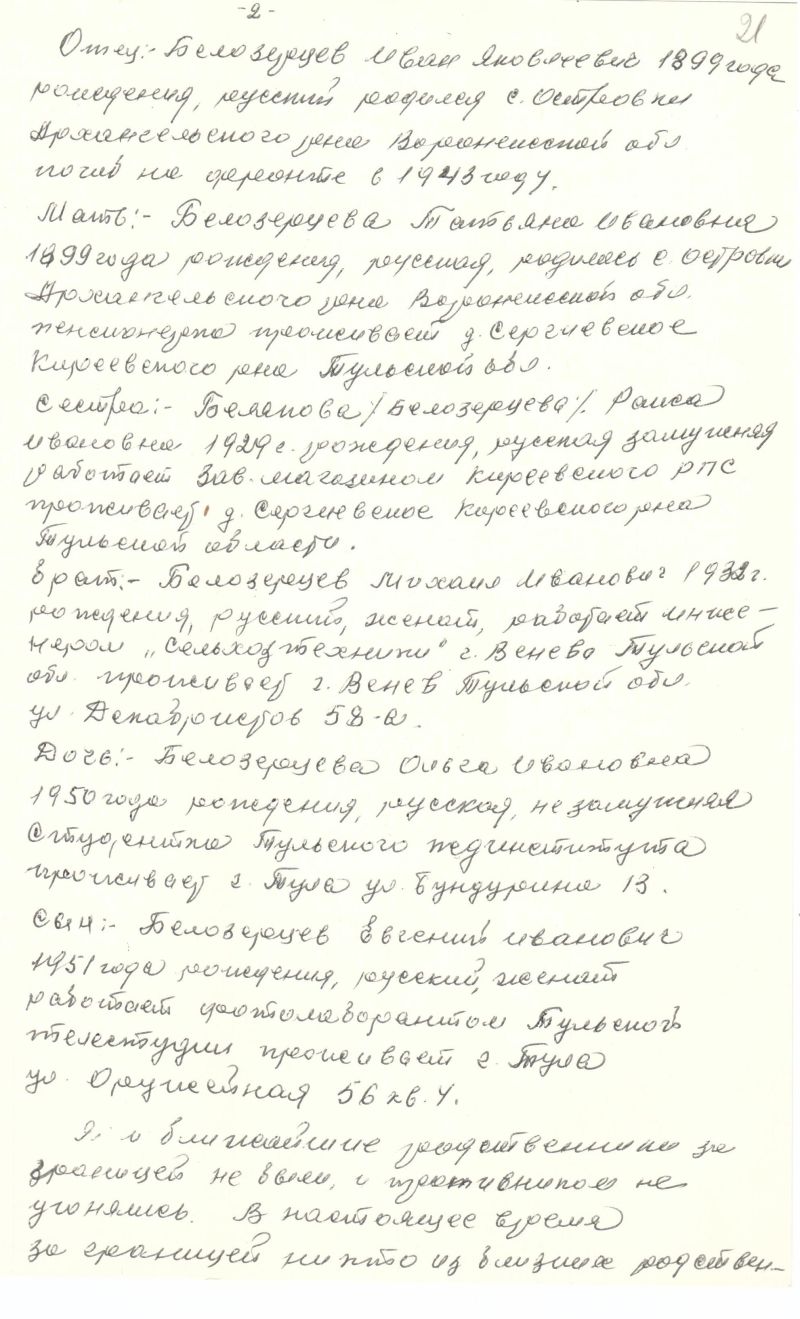 -2-
21
Отец:- Белозерцев Иван Яковлевич 1899 года
рождения, русский родился с. Островки
Архангельского р-на Воронежской обл
погиб на фронте в 1943 году.
Мать:- Белозерцева Татьяна Ивановна
1899 года рождения, русская, родилась с. Островки
Архангельского р-на Воронежской обл.
пенсионерка проживает д. Сергиевское
Киреевского р-на Тульской обл.
Сестра:- /Белозерцева/. Раиса
Ивановна 1929 г. рождения, русская замужняя
работает Зав. магазином Киреевского РПС
проживает д. Сергиевское Киреевского р-на
Тульской области.
Брат:- Белозерцев Михаил Иванович 1932 г.
рождения, русский, женат, работает инже-
нером „Сельхозтехники" г. Венева Тульской
обл. проживает г. Венев Тульской обл.
ул. Декабристов 58-а.
Дочь:- Белозерцева Ольга Ивановна
1950 года рождения, русская, не замужняя
студентка Тульского пединститута
проживает г. Тула ул. Бундурина 13.
Сын:- Белозерцев Евгений Иванович
1951 года рождения, русский, женат
работает фотолаборантом Тульской
телестудии проживает г. Тула
ул. Оружейная 56 кв. 4.
Я и ближайшие родственники за
границей не были, и противником не
угонялись. В настоящее время
за границей никто из близких родствен-